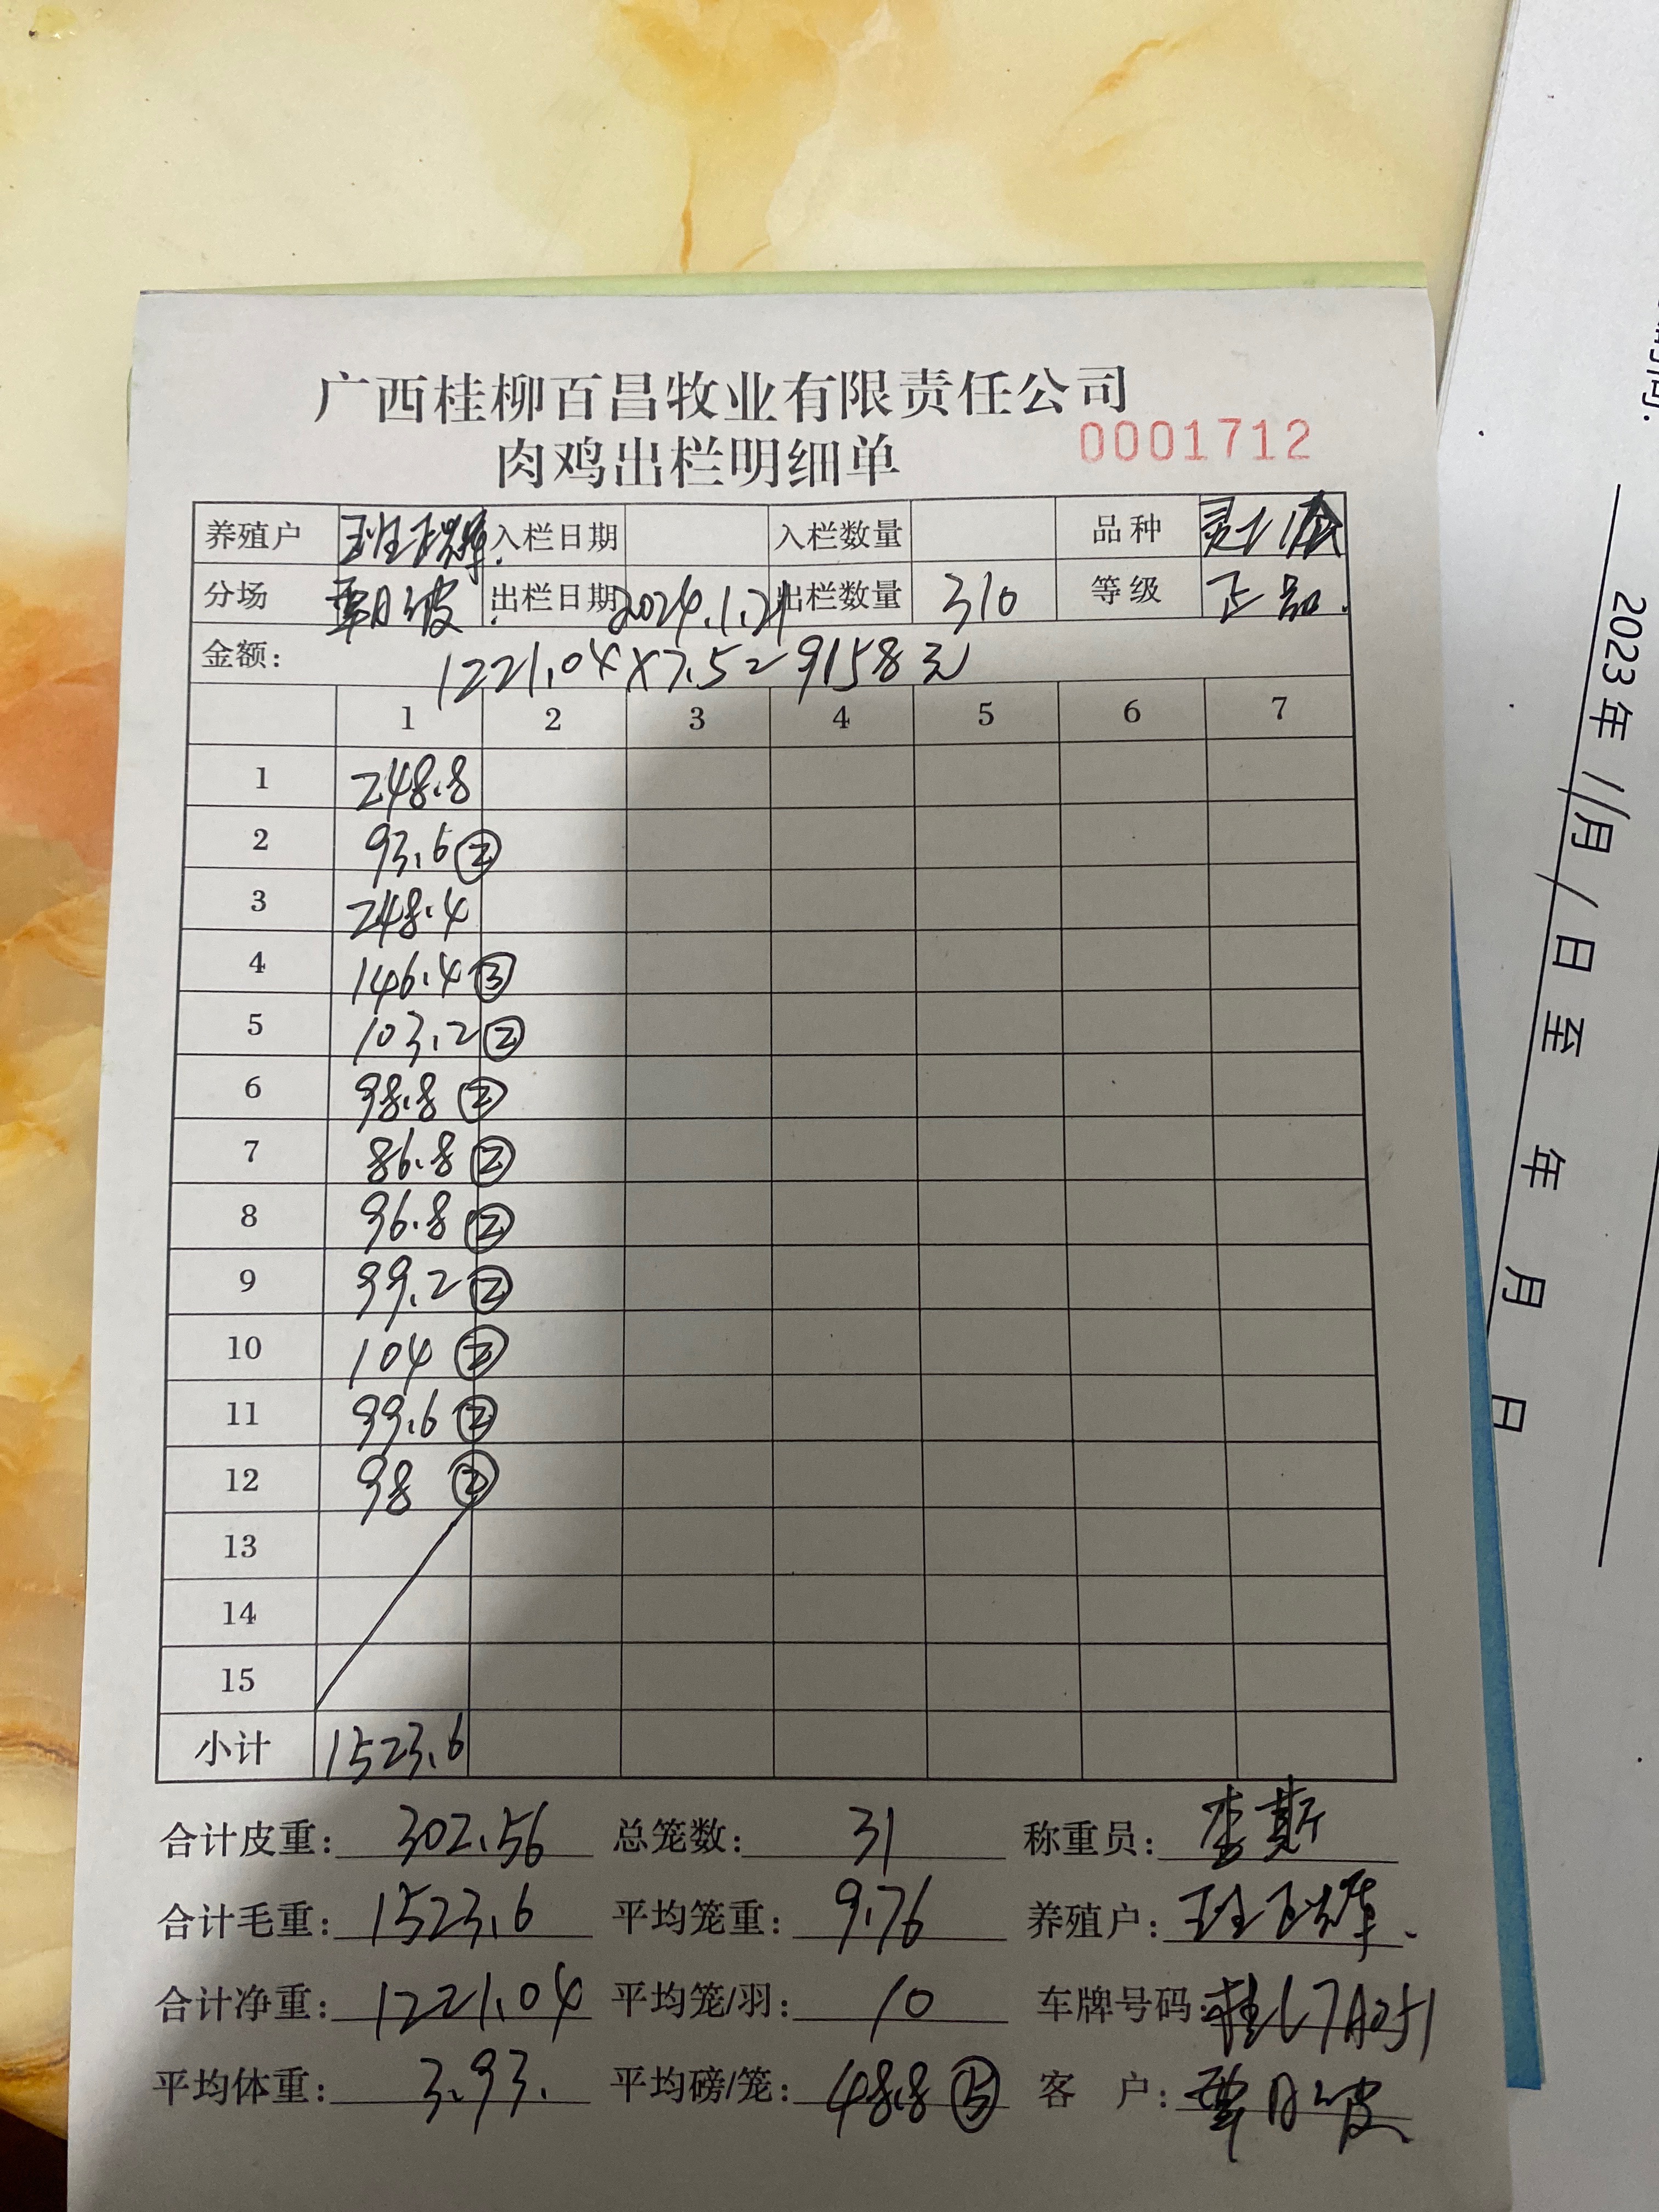 广西桂柳百昌牧业有限责任公司
肉鸡出栏明细单 0001712
养殖户 班 入栏日期 入栏数量 品种
分场 覃 出栏日期 2024.1.21 出栏数量 310 等级 正品.
金额: 1221.04×7.5=9158元
1 2 3 4 5 6 7
1 248.8
2 93.6 ②
3 248.4
4 146.4 ③
5 103.2 ②
6 98.8 ②
7 86.8 ②
8 96.8 ②
9 99.2 ②
10 104 ②
11 99.6 ②
12 98 ②
13
14
15
小计 1523.6
合计皮重: 302.56 总笼数: 31 称重员: 李斯
合计毛重: 1523.6 平均笼重: 9.76 养殖户: 班
合计净重: 1221.04 平均笼/羽: 10 车牌号码: 桂L7A051
平均体重: 3.93. 平均磅/笼: 48.8 ⑤ 客户: 覃
2023年11月1日至 年 月 日